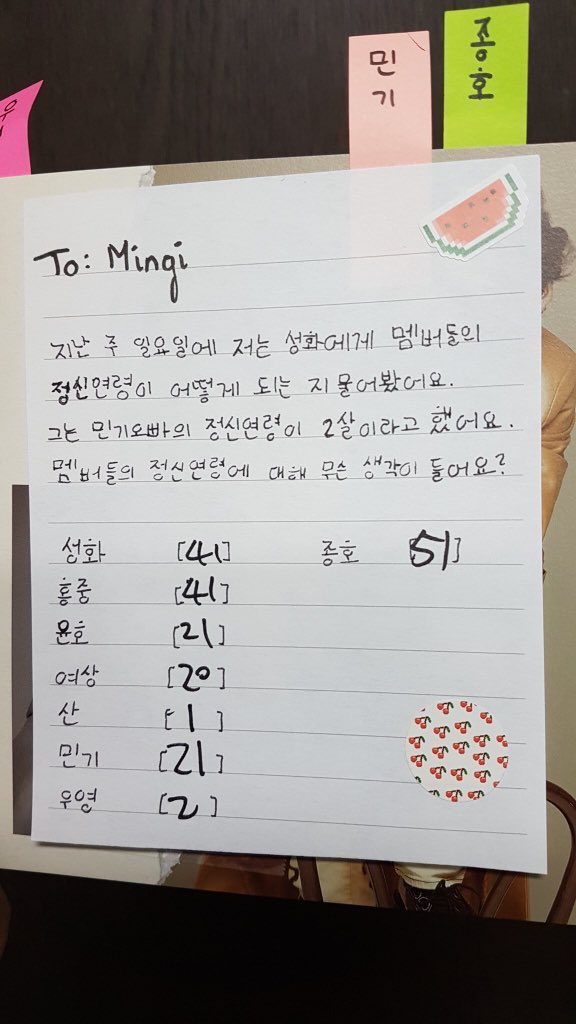 민기
종호
우
To: Mingi
지난 주 일요일에 저는 성화에게 멤버들의
정신연령이 어떻게 되는 지 물어봤어요.
그는 민기오빠의 정신연령이 2살이라고 했어요.
멤버들의 정신연령에 대해 무슨 생각이 들어요?
성화 [41] 종호 [51]
홍중 [41]
윤호 [21]
여상 [20]
산 [1]
민기 [21]
우영 [2]